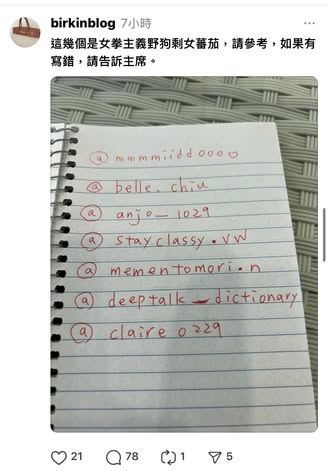 birkinblog 7小時
這幾個是女拳主義野狗剩女蕃茄，請參考，如果有
寫錯，請告訴主席。
@ mmmmiidd0000
@ belle.chiu
@ anjo_1029
@ stayclassy.vw
@ mementomori.n
@ deeptalk_dictionary
@ claire0229
21 78 1 5